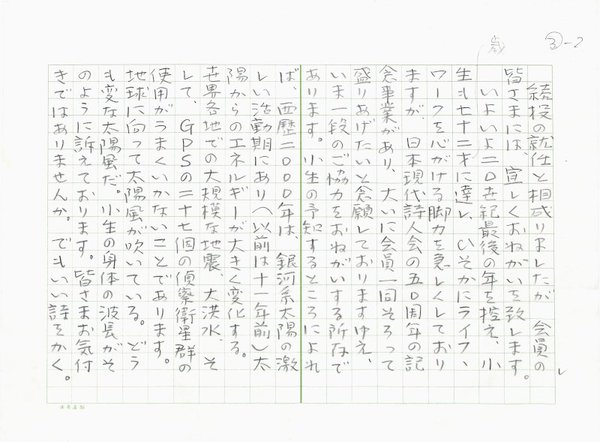 ③-2
続投の就任と相成りましたが、会員の
皆さまには、宜しくおねがいを致します。
いよいよ二〇世紀最後の年を控え、小
生も七十二才に達し、ひそかにライフ・
ワークを心がける脚力を急しくしており
ますが、日本現代詩人会の五〇周年の記
念事業があり、大いに会員一同そろって
盛りあげたいと念願しておりますゆえ、
いま一段のご協力をおねがいする所存で
あります。小生の予知するところによれ
ば、西暦二〇〇〇年は、銀河系太陽の激
しい活動期にあり(以前は十一年前)太
陽からのエネルギーが大きく変化する。
世界各地での大規模な地震、大洪水、そ
して、GPSの二十七個の偵察衛星群の
使用がうまくいかないことであります。
地球に向って太陽風が吹いている。どう
も変な太陽風だ。小生の身体の波長がそ
のように訴えております。皆さまお気付
きではありませんか。でもいい詩をかく。